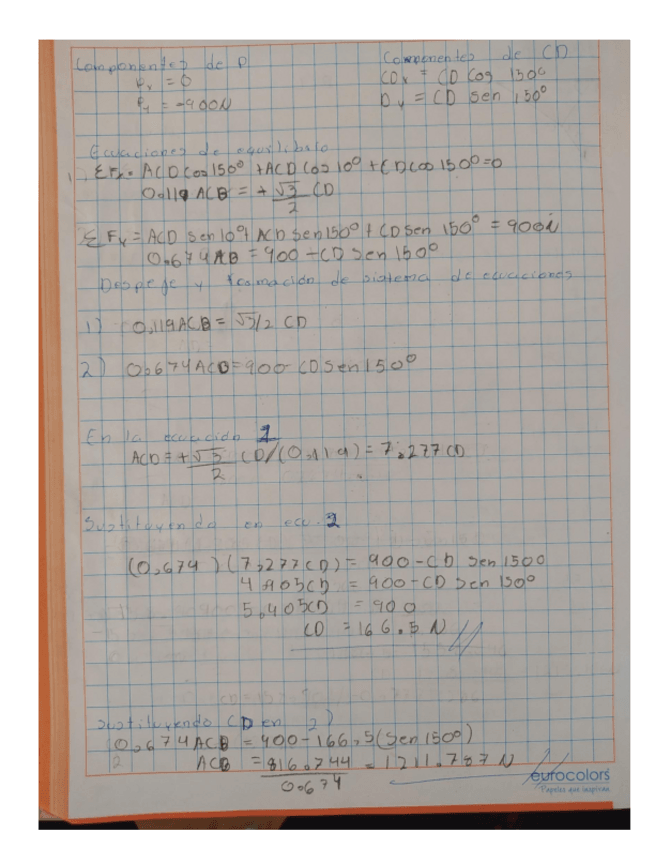 Componentes de P
Fx = 0
Fy = -900N
Componentes de CD
CDx = CD Cos 150°
Dy = CD Sen 150°
Ecuaciones de equilibrio
ΣFx = ACD cos 150° + ACD Cos 10° + CD cos 150° = 0
0.119 ACB = + √3/2 CD
ΣFy = ACD Sen 10° + ACD Sen 150° + CD Sen 150° = 900N
0.674 AB = 900 - CD Sen 150°
Despeje y formación de sistema de ecuaciones
1) 0,119 ACB = √3/2 CD
2) 0.674 ACD = 900 - CD Sen 150°
En la ecuación 1
ACD = + √3/2 CD/(0.119) = 7.277 CD
Sustituyendo en ecu. 2
(0,674)(7,277 CD) = 900 - CD Sen 150°
4.905 CD = 900 - CD Sen 150°
5,405 CD = 900
CD = 166.5 N //
Sustituyendo CD en 2)
0,674 ACB = 900 - 166,5 (Sen 150°)
ACB = 816.744/0.674 = 1211.787 N
eurocolors
Papeles que inspiran